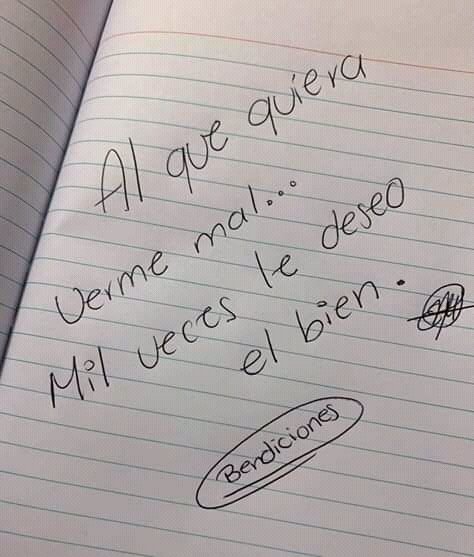 Al que quiera
verme mal...
Mil veces le deseo
el bien.
Bendiciones